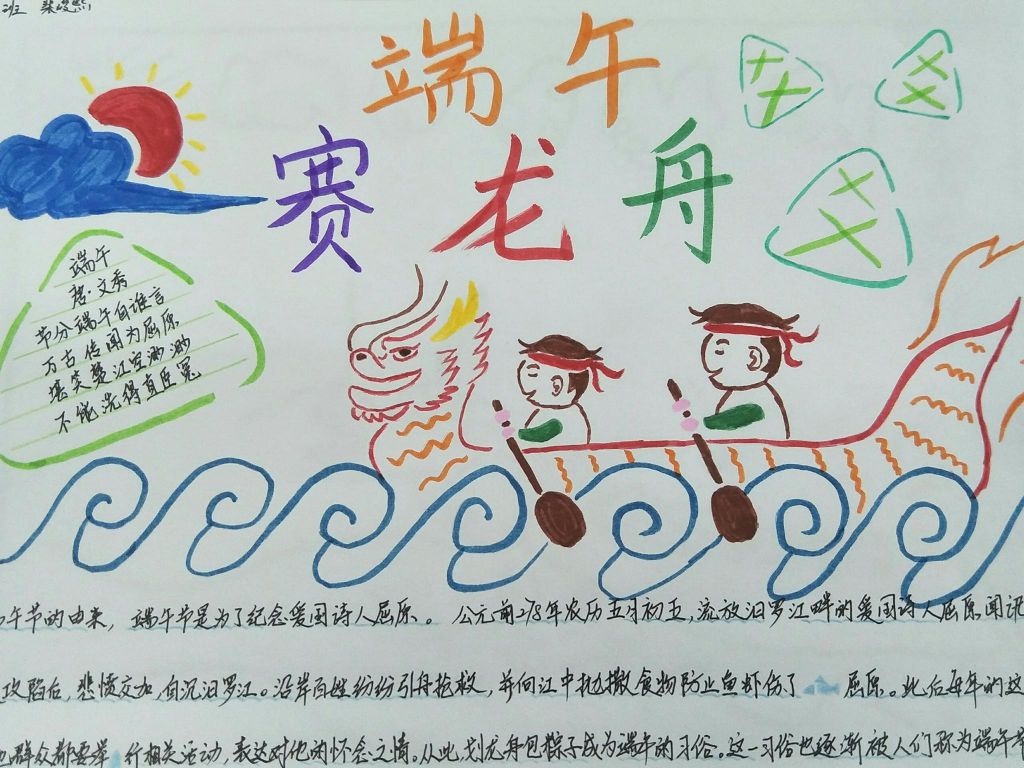 班
端午
赛龙舟
端午
唐·文秀
节分端午自谁言
万古传闻为屈原
堪笑楚江空渺渺
不能洗得直臣冤
午节的由来，端午节是为了纪念爱国诗人屈原。公元前278年农历五月初五，流放汨罗江畔的爱国诗人屈原闻讯
攻陷后，悲愤交加，自沉汨罗江。沿岸百姓纷纷引舟抢救，并向江中抛撒食物防止鱼虾伤了屈原。此后每年的这
地群众都要举行相关活动，表达对他的怀念之情。从此，划龙舟包粽子成为端午的习俗。这一习俗也逐渐被人们称为端午节